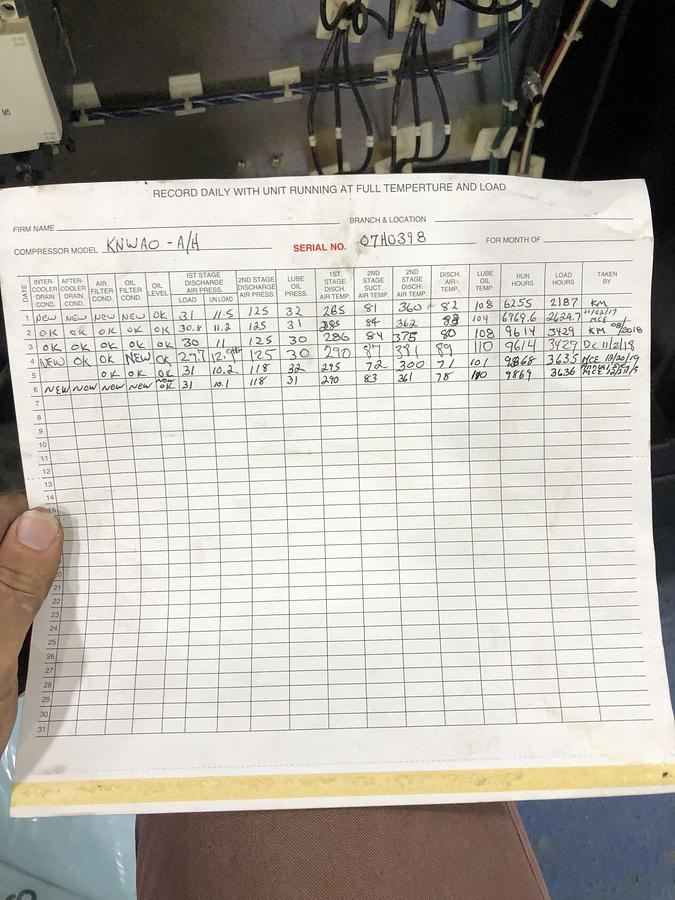 M5
RECORD DAILY WITH UNIT RUNNING AT FULL TEMPERTURE AND LOAD
FIRM NAME BRANCH & LOCATION
COMPRESSOR MODEL KNWAO - A/H SERIAL NO. 07H0398 FOR MONTH OF
DATE INTER-COOLER DRAIN COND. AFTER-COOLER DRAIN COND. AIR FILTER COND. OIL FILTER COND. OIL LEVEL 1ST STAGE DISCHARGE AIR PRESS. LOAD UNLOAD 2ND STAGE DISCHARGE AIR PRESS. LUBE OIL PRESS. 1ST STAGE DISCH. AIR TEMP. 2ND STAGE SUCT. AIR TEMP. 2ND STAGE DISCH. AIR TEMP. DISCH. AIR TEMP. LUBE OIL TEMP. RUN HOURS LOAD HOURS TAKEN BY
1 NEW NEW NEW NEW OK 31 11.5 125 32 285 81 360 82 108 6255 2187 KM
2 OK OK OK OK OK 30.8 11.2 125 31 285 84 362 88 104 6769.6 2624.7 11/02/17 MCE
3 OK OK OK OK OK 30 11 125 30 286 84 375 80 108 9614 3429 KM 08/2018
4 NEW OK OK NEW OK 29.7 125 30 290 89 110 9614 3429 DC 11/2/18
5 OK OK OK 31 10.2 118 32 295 72 300 71 101 9868 3635 MCE
6 NEW NEW NEW NEW NEW OK 31 10.1 118 31 290 83 361 78 110 9869 3636 MCE
7
8
9
10
11
12
13
14
20
21
22
23
24
25
26
27
28
29
30
31